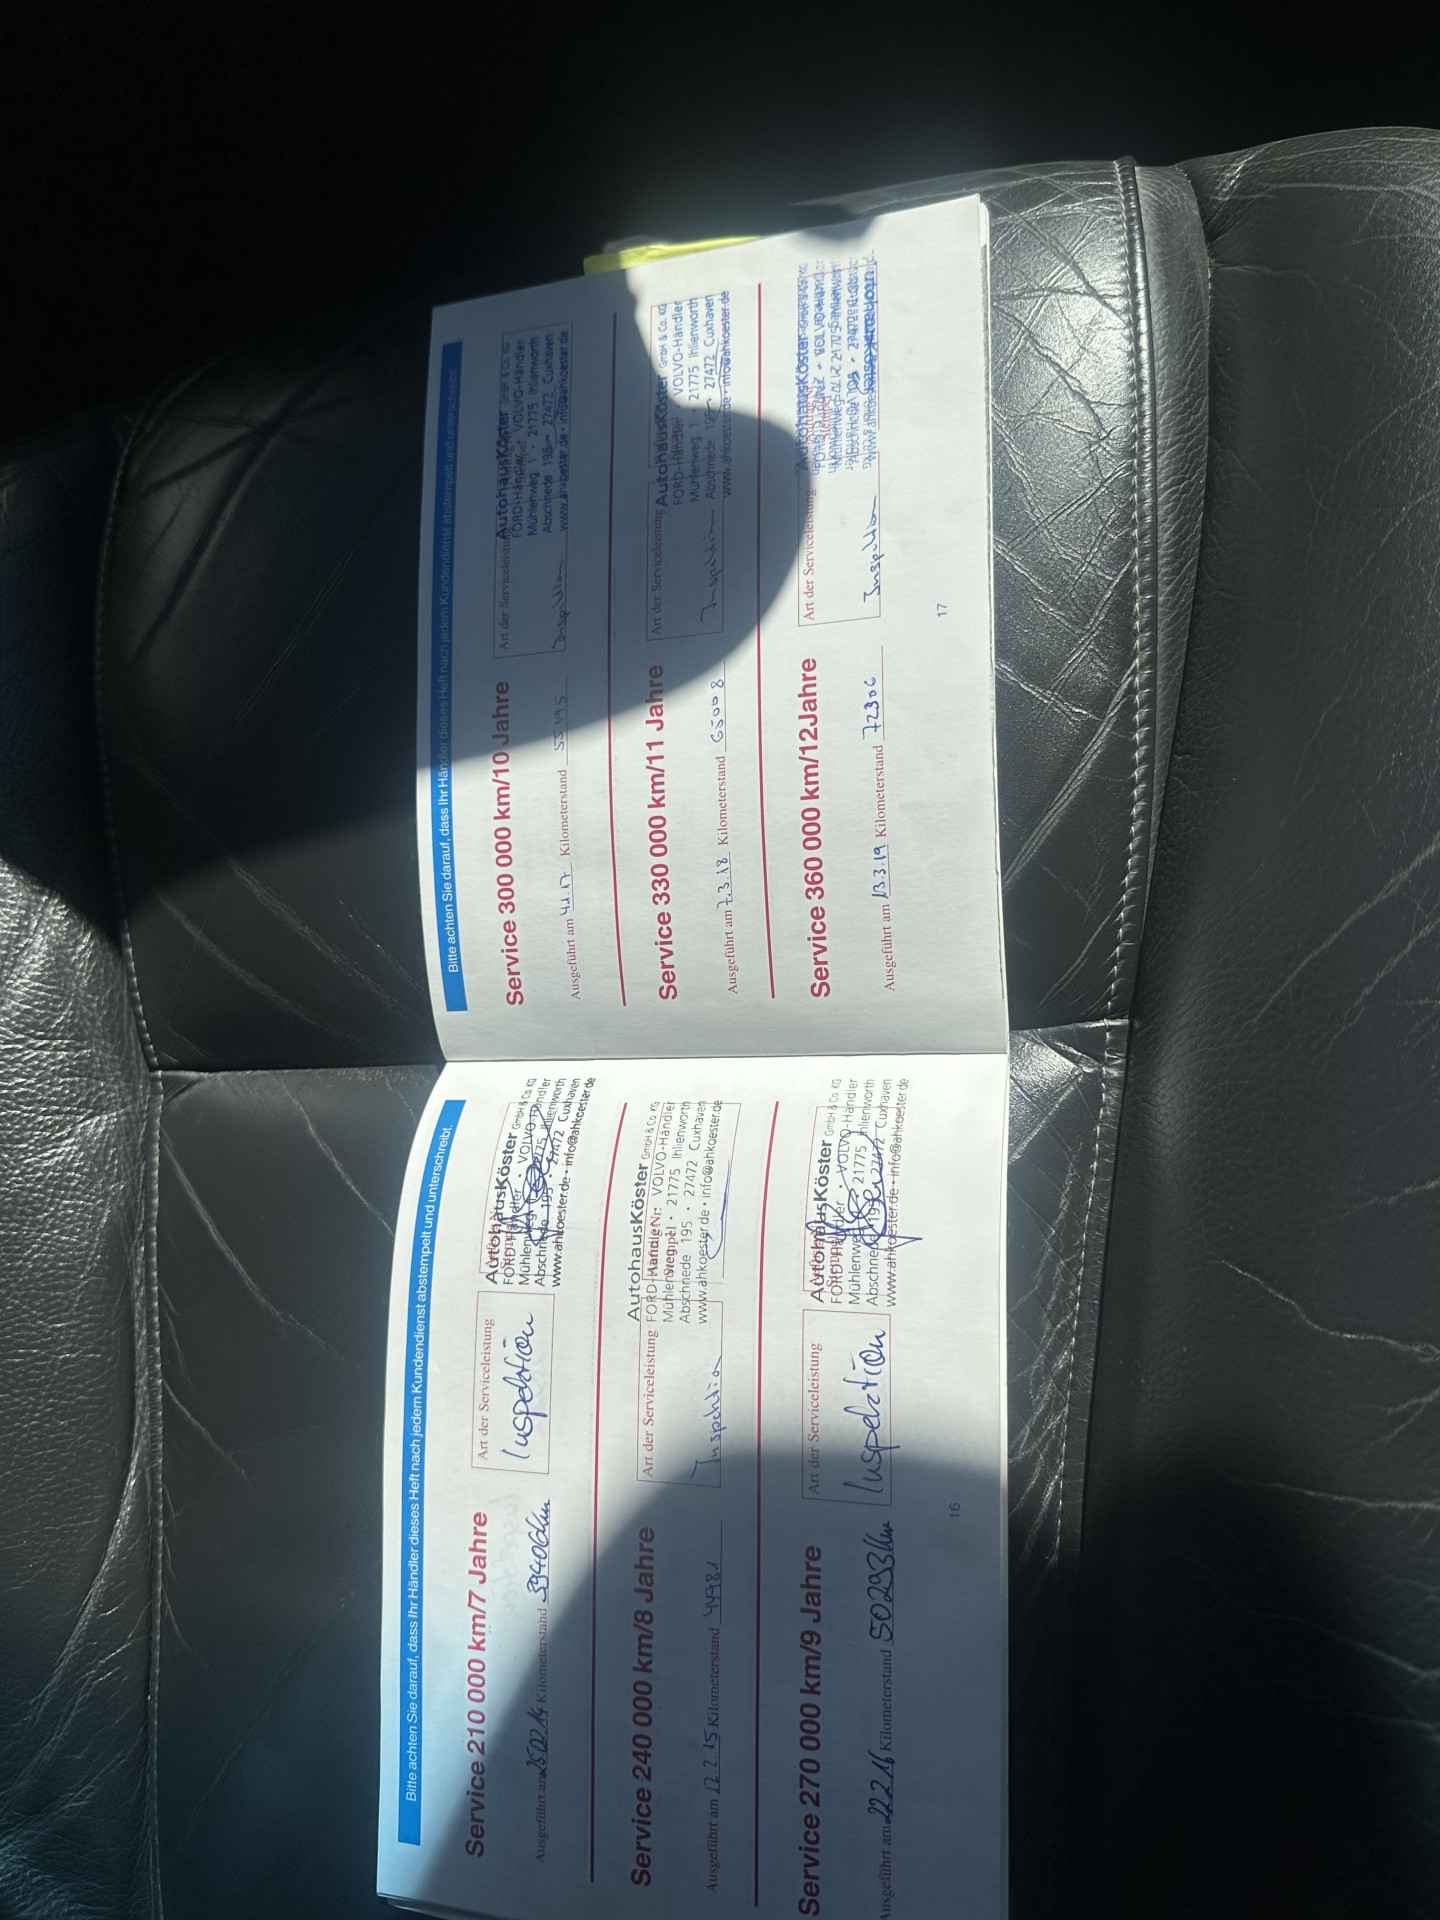 Bitte achten Sie darauf, dass Ihr Händler dieses Heft nach jedem Kundendienst abstempelt und unterschreibt.
Service 210 000 km/7 Jahre
Art der Serviceleistung
AutohausKöster GmbH & Co. KG
FORD-Händler · VOLVO-Händler
Mühlenweg 1 · 21775 Ihlienworth
Abschnede 195 · 27472 Cuxhaven
www.ahkoester.de · info@ahkoester.de
Ausgeführt am 25.02.14 Kilometerstand 39406km
Inspektion
Service 240 000 km/8 Jahre
Art der Serviceleistung
AutohausKöster GmbH & Co. KG
FORD-Händler VOLVO-Händler
Mühlenweg 21775 Ihlienworth
Abschnede 195 · 27472 Cuxhaven
www.ahkoester.de · info@ahkoester.de
Ausgeführt am 12.2.15 Kilometerstand
Inspektion
Service 270 000 km/9 Jahre
Art der Serviceleistung
AutohausKöster GmbH & Co. KG
FORD-Händler · VOLVO-Händler
Mühlenweg 21775 Ihlienworth
Abschnede 195 · 27472 Cuxhaven
www.ahkoester.de · info@ahkoester.de
Ausgeführt am 22.2.16 Kilometerstand 50293km
Inspektion
16
Bitte achten Sie darauf, dass Ihr Händler dieses Heft nach jedem Kundendienst abstempelt und unterschreibt.
Service 300 000 km/10 Jahre
Art der Serviceleistung
AutohausKöster GmbH & Co. KG
FORD-Händler VOLVO-Händler
Mühlenweg 1 · 21775 Ihlienworth
Abschnede 195 · 27472 Cuxhaven
www.ahkoester.de · info@ahkoester.de
Ausgeführt am Kilometerstand
Inspektion
Service 330 000 km/11 Jahre
Art der Serviceleistung
AutohausKöster GmbH & Co. KG
FORD-Händler VOLVO-Händler
Mühlenweg 1 · 21775 Ihlienworth
Abschnede 195 · 27472 Cuxhaven
www.ahkoester.de · info@ahkoester.de
Ausgeführt am 7.3.18 Kilometerstand 65008
Inspektion
Service 360 000 km/12Jahre
Art der Serviceleistung
AutohausKöster
Ausgeführt am 13.3.19 Kilometerstand 72306
Inspektion
17